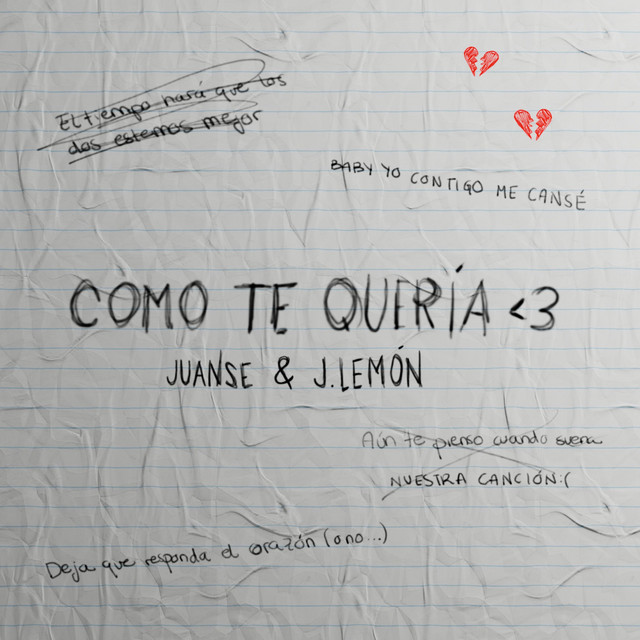 El tiempo hará que los
dos estemos mejor
BABY YO CONTIGO ME CANSÉ
CÓMO TE QUERÍA <3
JUANSE & J.LEMÓN
Aún te pienso cuando suena
NUESTRA CANCIÓN:(
Deja que responda el corazón (o no...)